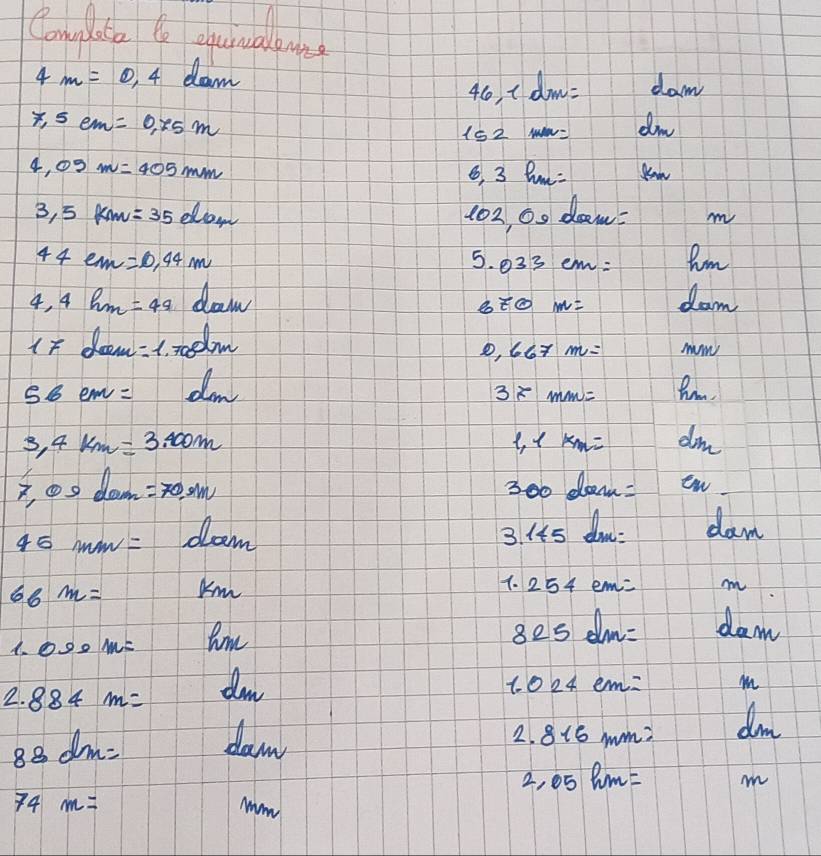 Completa le equivalenze
4 m = 0,4 dam
7,5 cm = 0,75 m
4,09 m = 405 mm
3,5 Km = 35 dam
44 cm = 0,44 m
4,4 hm = 44 dam
17 dam = 1.700 dm
56 cm = dm
3,4 Km = 3.400 m
7,09 dam = 70,9 m
45 mm = dam
66 m = Km
1.090 m = hm
2.884 m = dm
88 dm = dam
74 m = mm
46,1 dm = dam
152 mm = dm
6,3 hm = Km
102,09 dam = m
5.033 cm = hm
670 m = dam
0,667 m = mm
37 mm = hm
1,1 Km = dm
300 dam = cm
3.145 dm = dam
1.254 cm = m
825 dm = dam
1.024 cm = m
2.816 mm = dm
2,05 hm = m